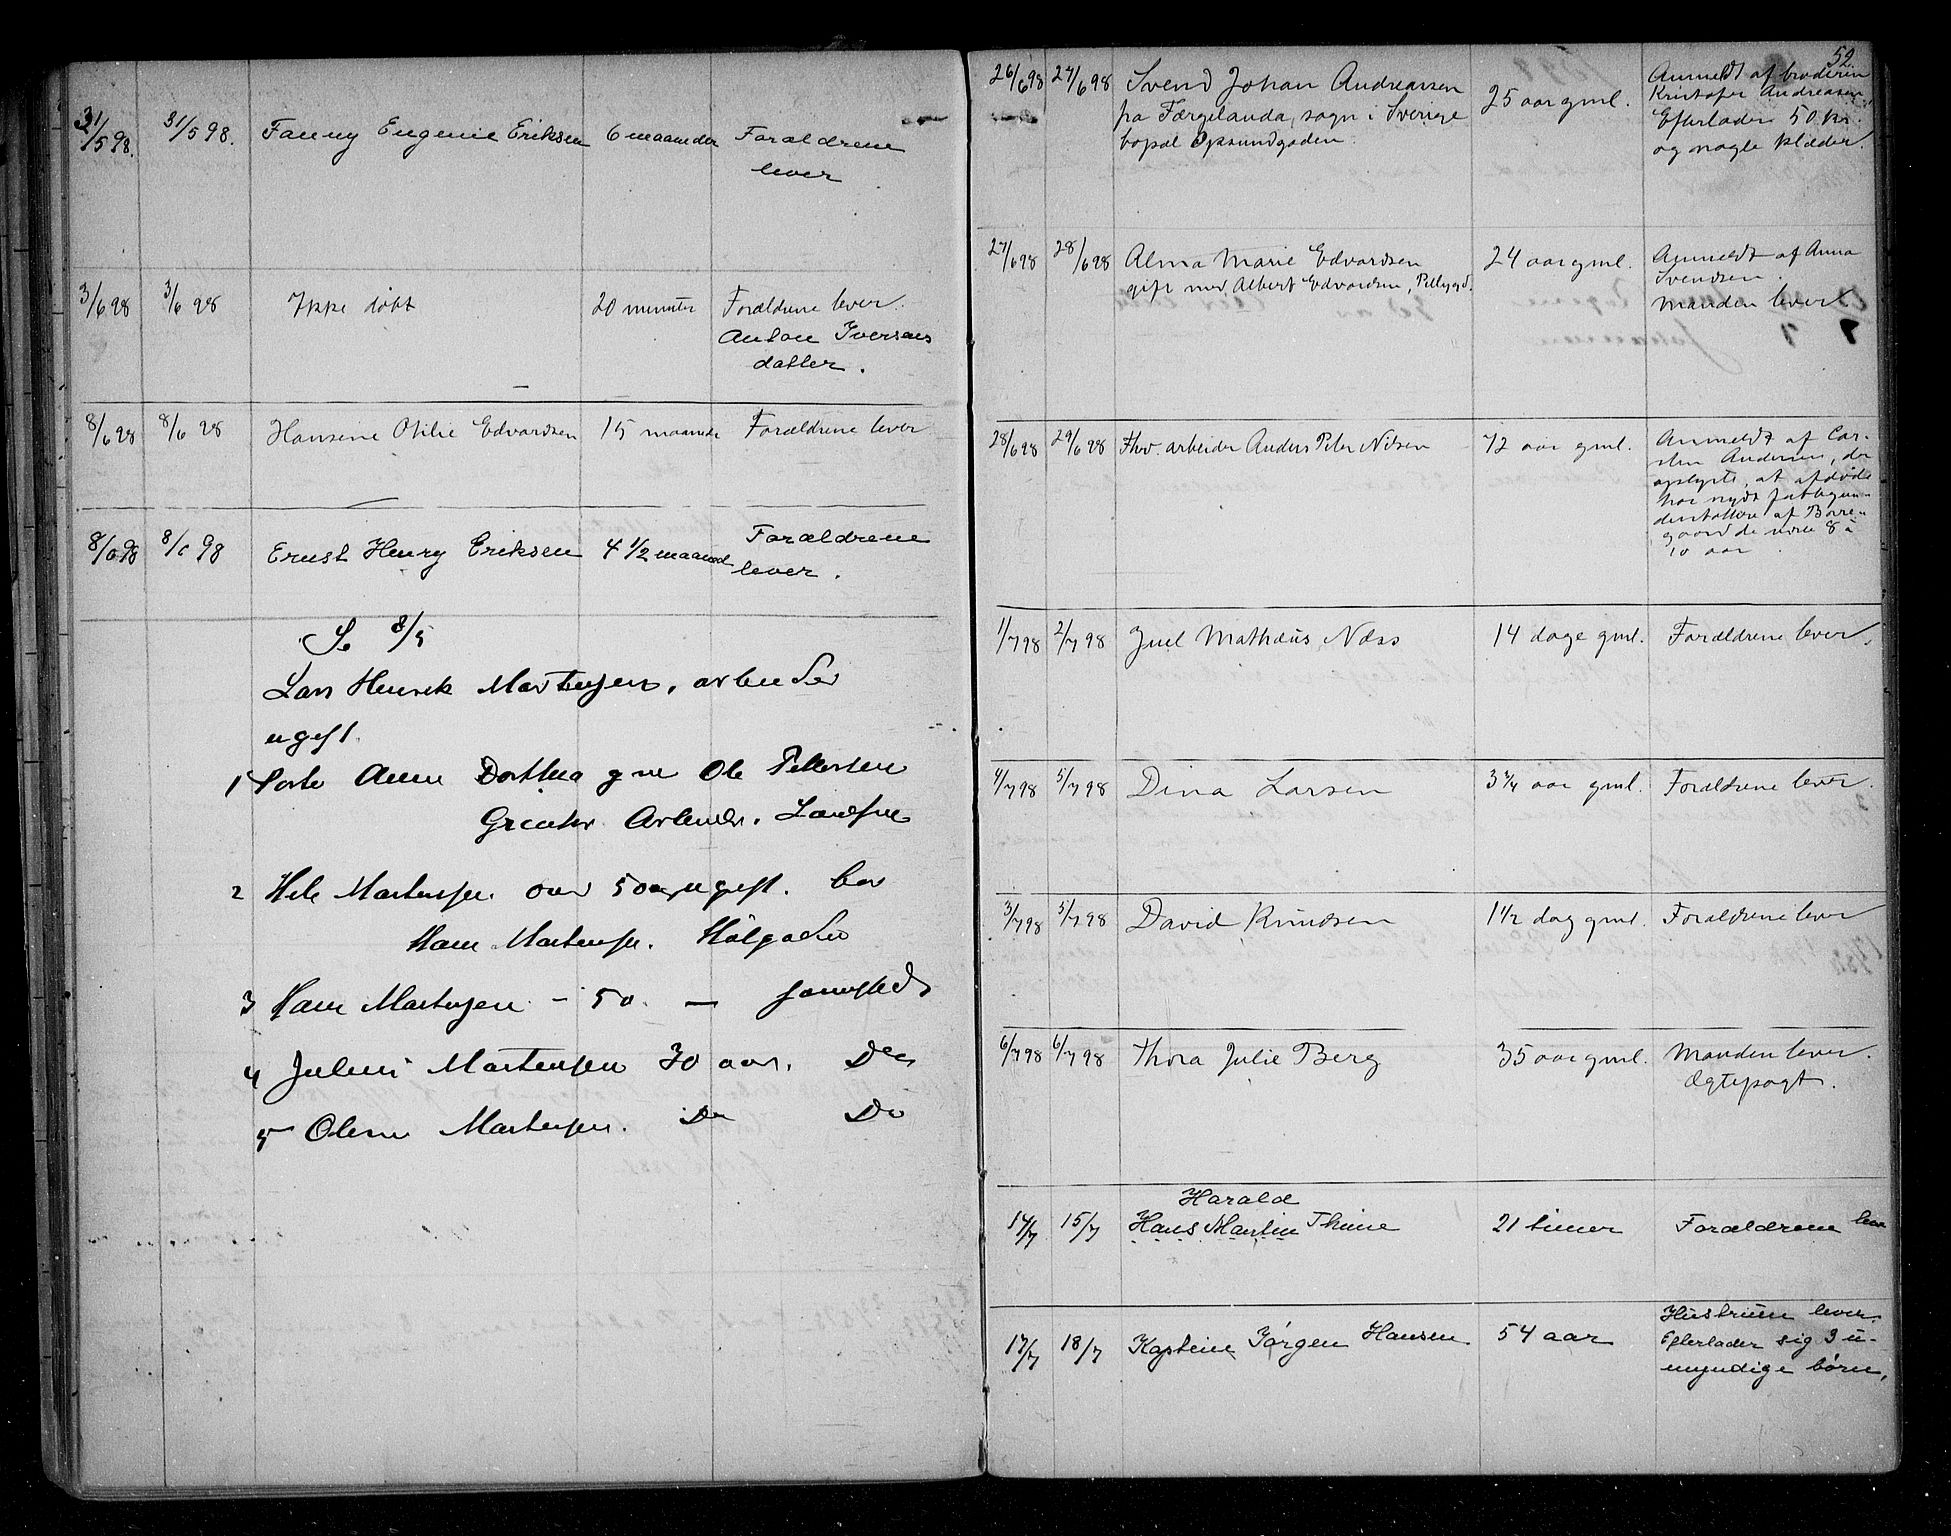 31/5 98. 31/5 98. Fanny Eugenie Eriksen 6 maaneder Forældrene
lever
3/6 98 3/6 98 Ikke døbt 20 minuter Forældrene lever.
Anton Iversens
datter.
8/6 98 8/6 98 Hansine Otilie Edvardsen 15 maaneder Forældrene lever
8/6 98 8/6 98 Ernst Henry Eriksen 4 1/2 maaned Forældrene
lever.
8/5
Lars Henrik Martensen, arbeider
ugift.
1 Anne Dorthea gm Ole Pettersen
2 Martensen over 50 ugift. bor
Hans Martensen.
3 Hans Martensen - 50. — sammesteds
4 Julius Martensen 30 aar. Do
5 Martensen. Do Do
52.
26/6 98 27/6 98 Svend Johan Andreassen 25 aar gml. Anmeldt af broderen
fra Færgelanda, sogn i Sverige Kristofer Andreasen
bopæl Opsundgaden. Efterlader 50 kr.
og nogle klæder.
27/6 98 28/6 98 Alma Marie Edvardsen 24 aar gml. Anmeldt af Anna
gift med Albert Edvardsen, Svendsen.
Manden lever.
28/6 98 29/6 98 Fhv. arbeider Anders Peter Nilsen 72 aar gml. Anmeldt af Car-
sten Andersen, der
oplyste, at afdøde
har nydt fattigun-
derstøttelse af Borre-
gaard de siste 8 à
10 aar.
1/7 98 2/7 98 Juel Mathæus Næss 14 dage gml. Forældrene lever.
4/7 98 5/7 98 Dina Larsen 3 3/4 aar gml. Forældrene lever.
3/7 98 5/7 98 David Knudsen 1 1/2 dag gml. Forældrene lever
6/7 98 6/7 98 Thora Julie Berg 35 aar gml. Manden lever.
Ægtepagt.
Harald
14/7 15/7 Hans Martin Thime 21 timer Forældrene lever
17/7 18/7 Kaptein Jørgen Hansen 54 aar Hustruen lever.
Efterlader sig 3 u-
myndige børn.